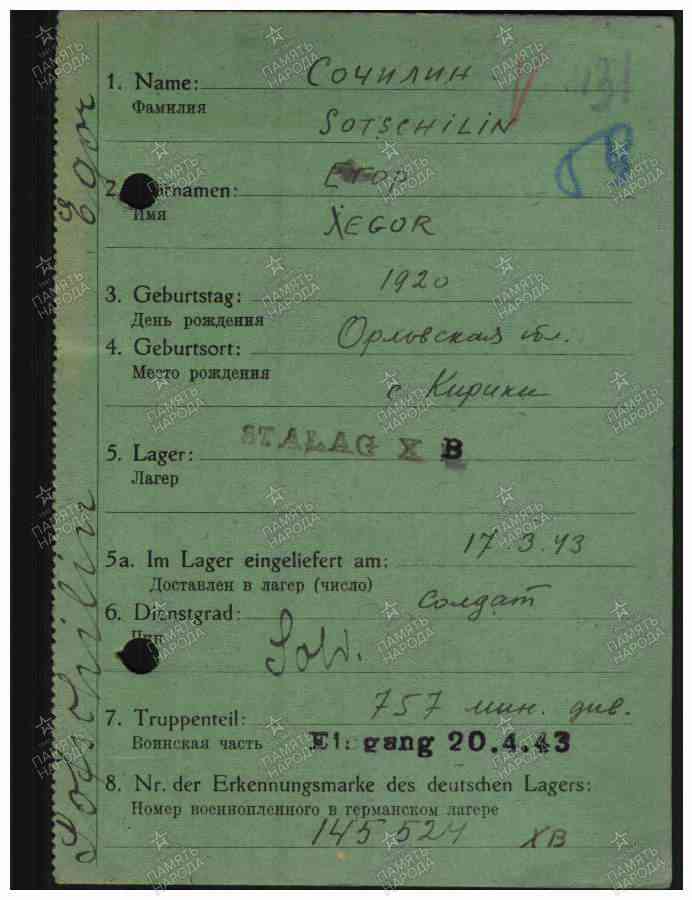 1. Name: Сочилин
Фамилия
SOTSCHILIN
131
58
2. Vornamen: Егор
Имя
JEGOR
3. Geburtstag: 1920
День рождения
4. Geburtsort: Орловская обл.
Место рождения
с Кирики
5. Lager: STALAG X B
Лагер
5a. Im Lager eingeliefert am: 17.3.43
Доставлен в лагер (число)
6. Dienstgrad: солдат
Чин
Sold.
7. Truppenteil: 757 мин. див.
Воинская часть
Eingang 20.4.43
8. Nr. der Erkennungsmarke des deutschen Lagers:
Номер военнопленного в германском лагере
145 524 XB
Sotschilin Egor
ПАМЯТЬ НАРОДА